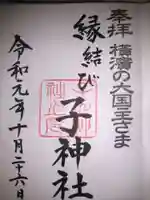 奉拝 横濱の大国主さま
縁結び
子神社
令和元年十月二十六日